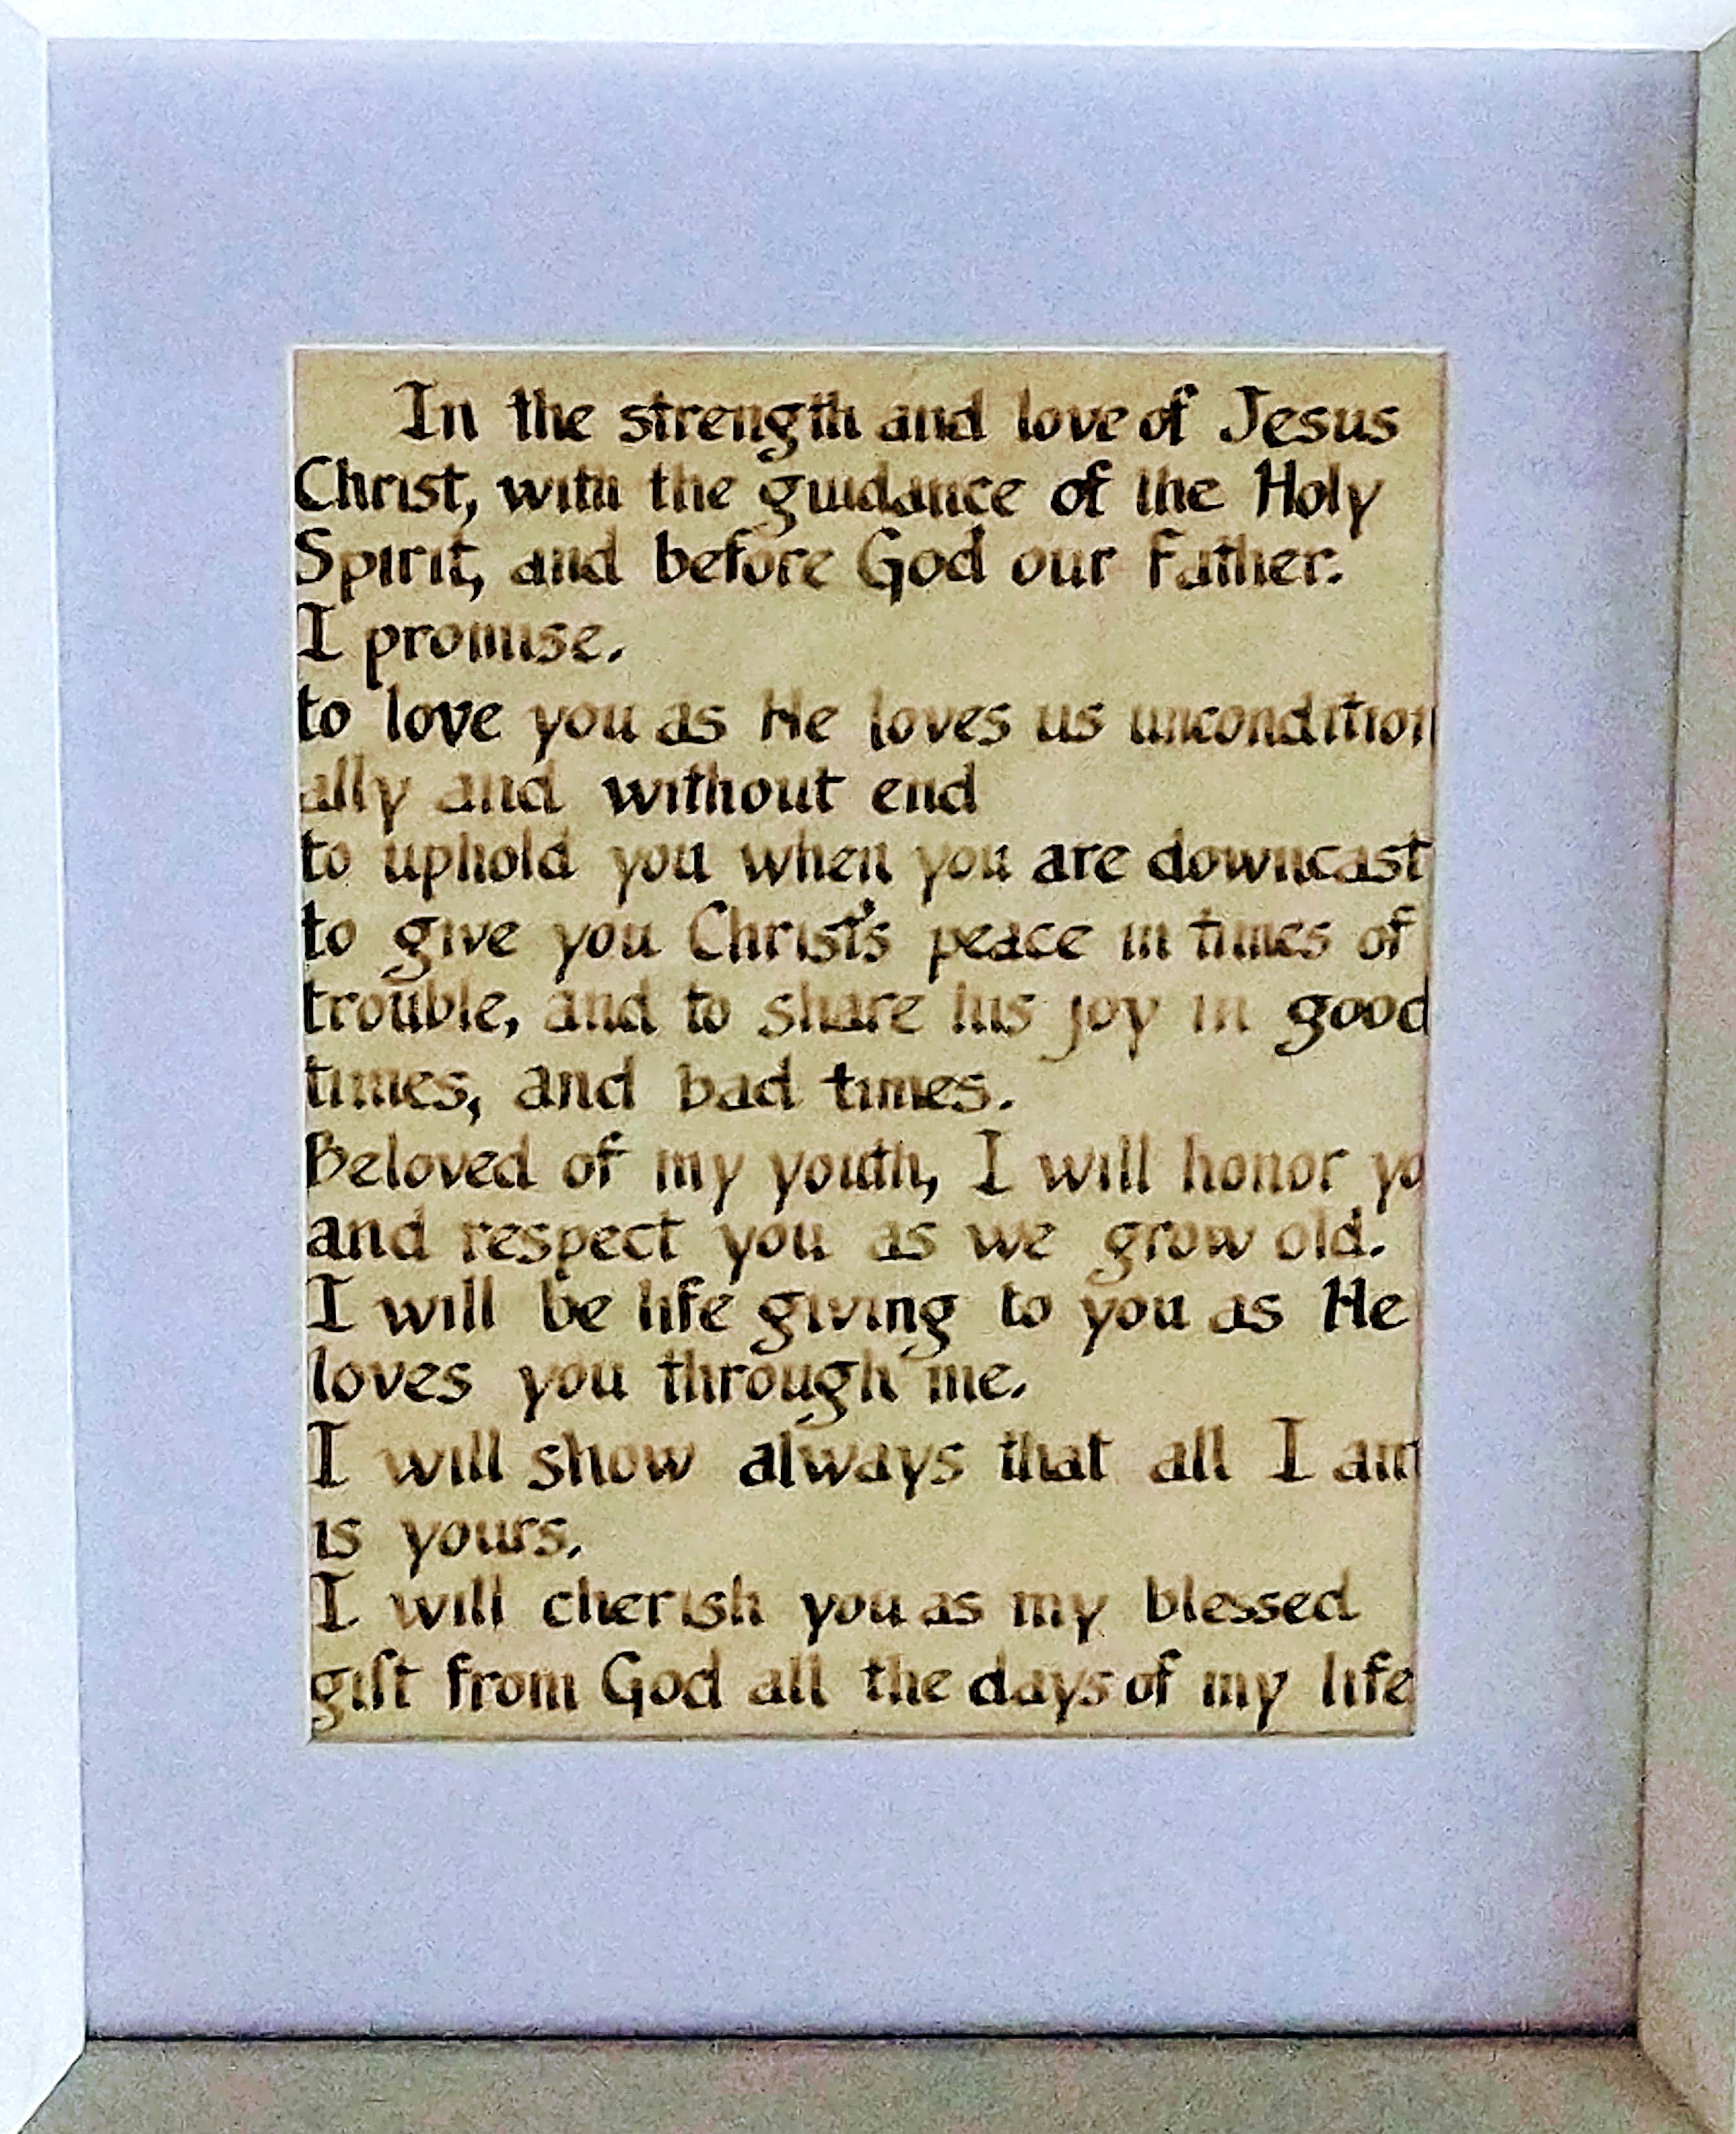 In the strength and love of Jesus
Christ, with the guidance of the Holy
Spirit, and before God our Father.
I promise.
to love you as He loves us uncondition
ally and without end
to uphold you when you are downcast
to give you Christ's peace in times of
trouble, and to share his joy in good
times, and bad times.
Beloved of my youth, I will honor yo
and respect you as we grow old.
I will be life giving to you as He
loves you through me.
I will show always that all I am
is yours.
I will cherish you as my blessed
gift from God all the days of my life